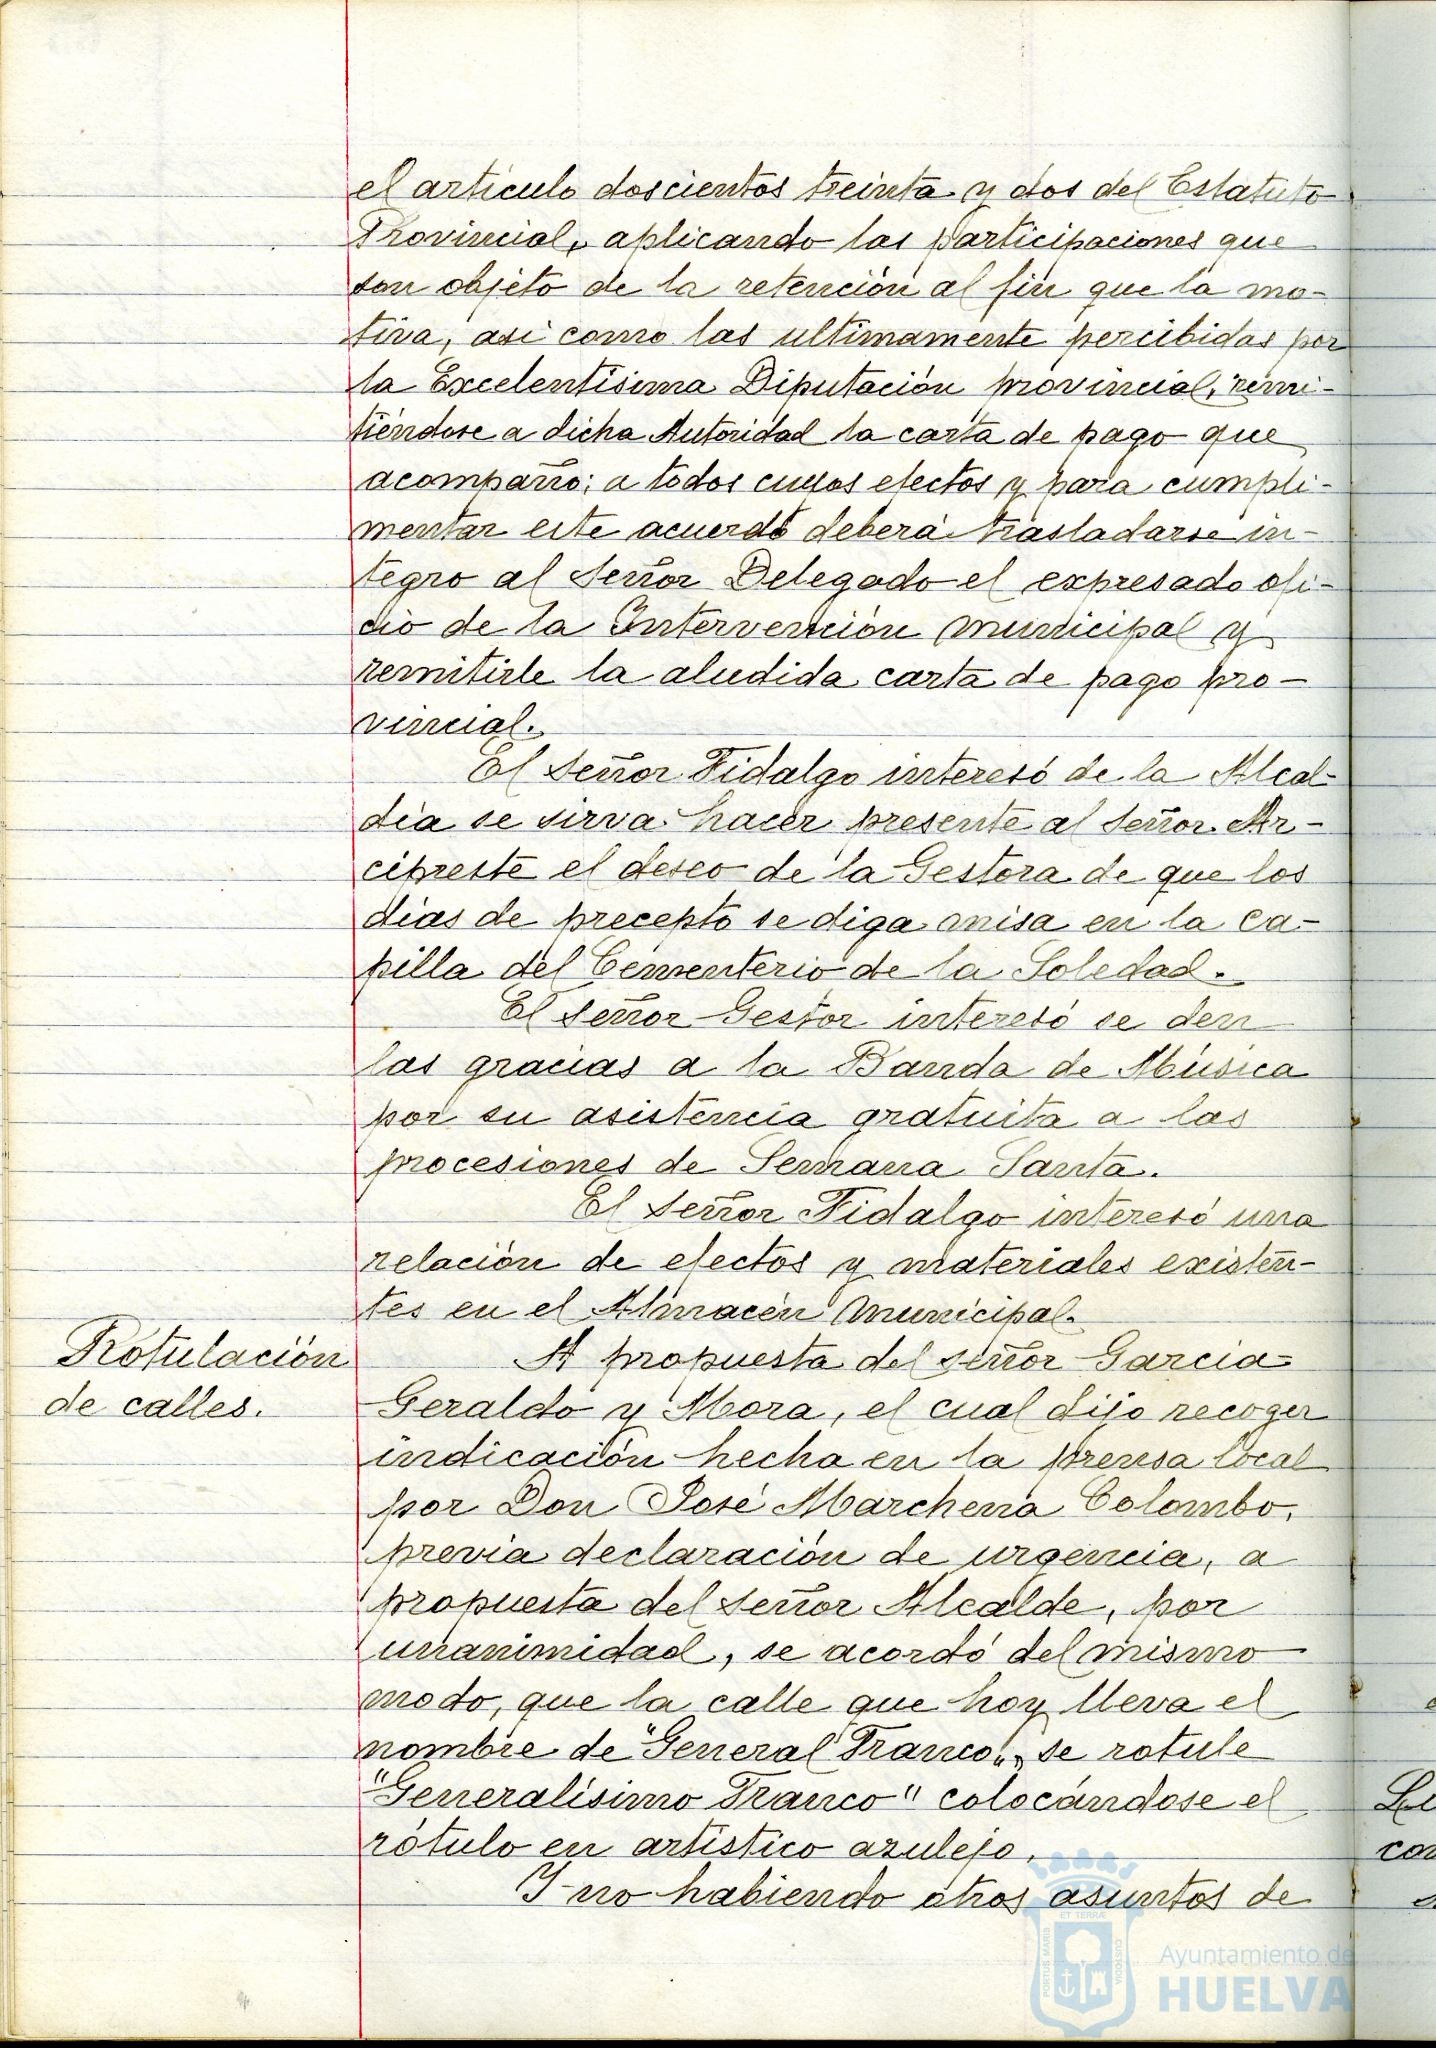 el artículo doscientos treinta y dos del Estatuto
Provincial, aplicando las participaciones que
son objeto de la retención al fin que la mo-
tiva, así como las ultimamente percibidas por
la Excelentísima Diputación provincial, remi-
tiéndose a dicha Autoridad la carta de pago que
acompaño; a todos cuyos efectos y para cumpli-
mentar este acuerdo deberá trasladarse in-
tegro al Señor Delegado el expresado ofi-
cio de la Intervención municipal y
remitirle la aludida carta de pago pro-
vincial.
El Señor Fidalgo interesó de la Alcal-
día se sirva hacer presente al Señor Ar-
cipreste el deseo de la Gestora de que los
días de precepto se diga misa en la Ca-
pilla del Cementerio de la Soledad.
El Señor Gestor interesó se den
las gracias a la Banda de Música
por su asistencia gratuita a las
procesiones de Semana Santa.
El Señor Fidalgo interesó una
relación de efectos y materiales existen-
tes en el Almacén Municipal.
Rotulación
de calles.
A propuesta del señor García
Geraldo y Mora, el cual dijo recoger
indicación hecha en la prensa local
por Don José Marchena Colombo,
previa declaración de urgencia, a
propuesta del Señor Alcalde, por
unanimidad, se acordó del mismo
modo, que la calle que hoy lleva el
nombre de "General Franco", se rotule
"Generalísimo Franco" colocándose el
rótulo en artístico azulejo.
Y no habiendo otros asuntos de
PORTUS MARIS
ET TERRÆ
CUSTODIA
Ayuntamiento de
HUELVA